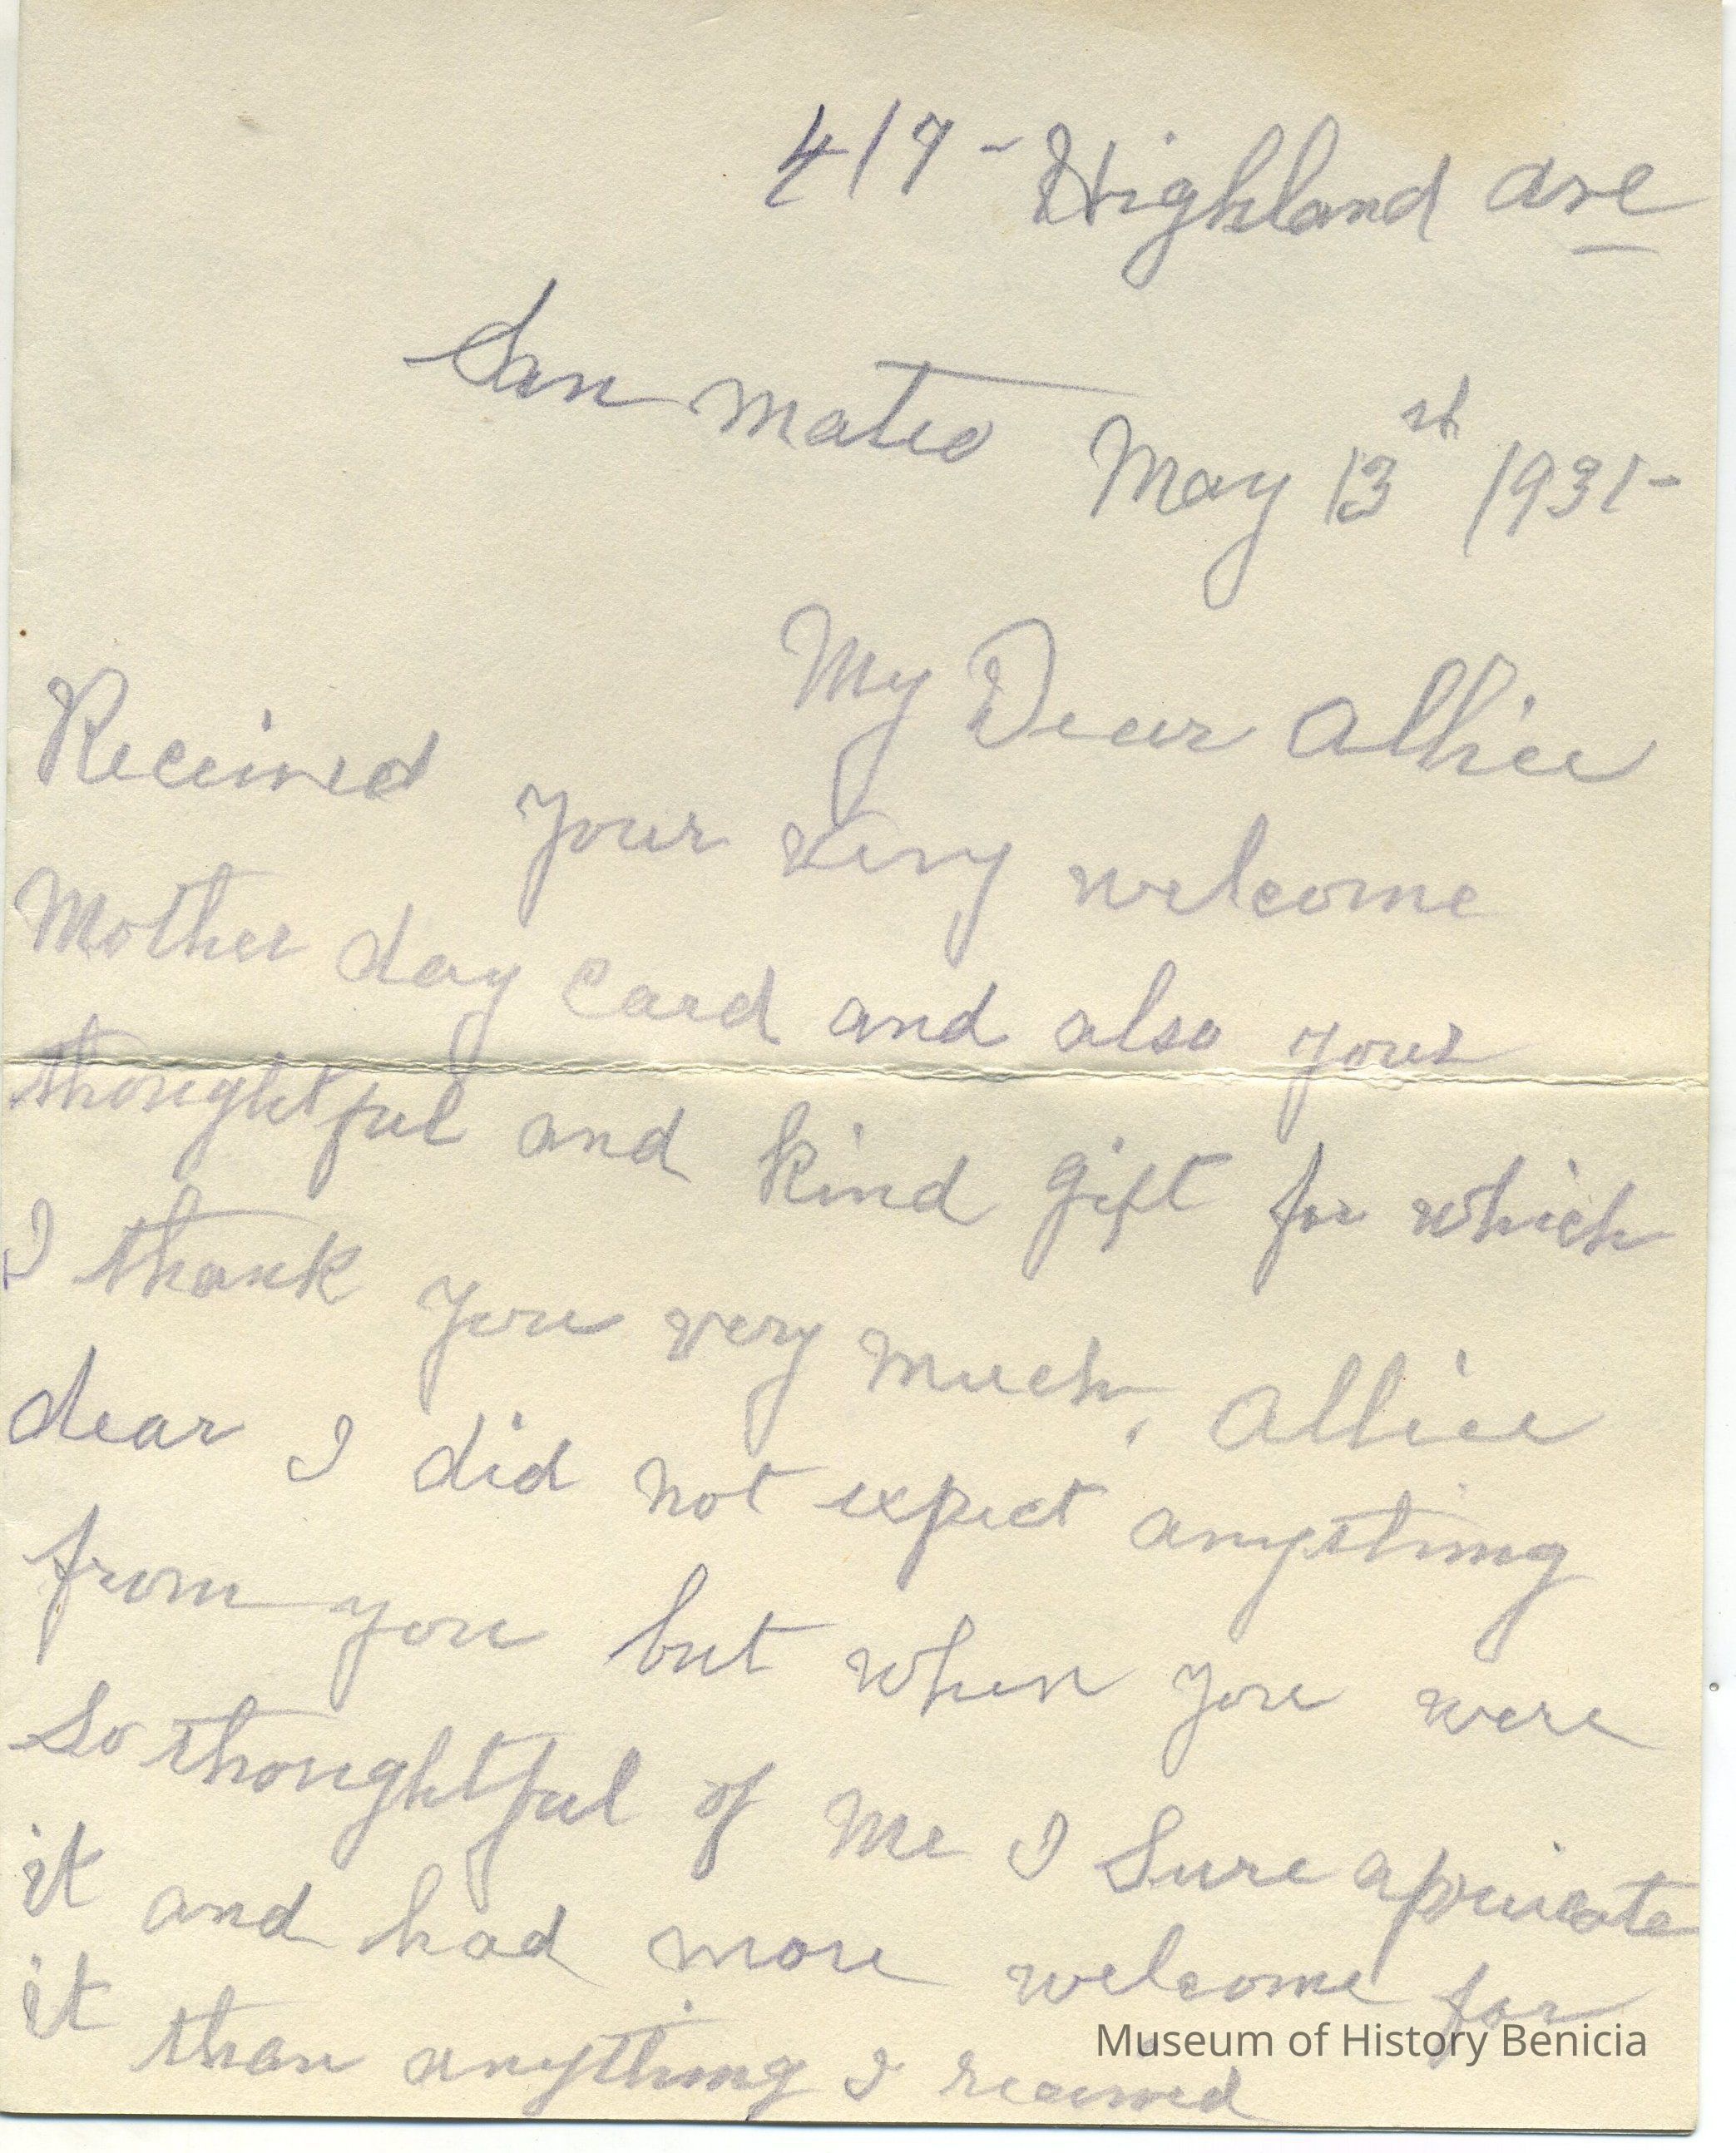 417 - Highland ave
San Mateo May 13st 1931-
My Dear Allice
Received your very welcome
Mother day card and also your
thoughtful and kind gift for which
I thank you very much. Allice
dear I did not expect anything
from you but when you were
so thoughtful of me I sure apriciate
it and had more welcome for
it than anything I received
Museum of History Benicia